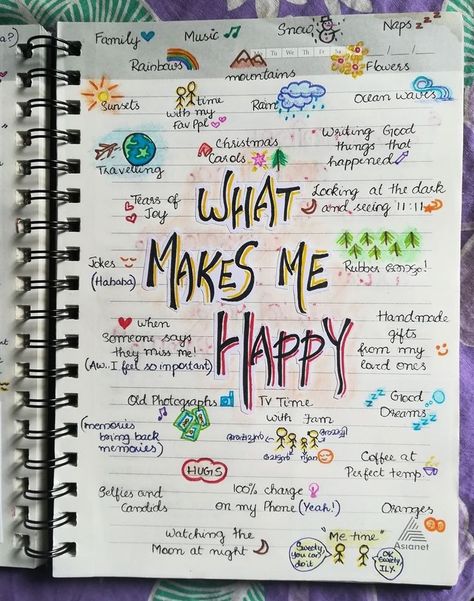 Family Music Snow Naps zzz
Mo Tu We Th Fr Sa
Rainbows mountains Flowers
Sunsets time
with my
Fav Ppl
Rain
Ocean waves
Travelling
Christmas
Carols
Writing Good
things that
happened
Tears of
Joy
Looking at the dark
and seeing 11:11
WHAT
MAKES ME
HAPPY
Jokes
(Hahaha)
Rubber തോട്ടം!
when
someone says
they miss me!
(Aw..I feel so important)
Handmade
gifts
from my
loved ones
Old Photographs
(memories
bring back
memories)
TV Time
with Fam
zz Good zz
Dreams zz
HUGS
Coffee at
Perfect temp.
Selfies and
Candids
100% charge
on my Phone (Yeah!)
Oranges
Watching the
Moon at night
"Me time"
Sweety,
You can
do it
OK
Sweety,
ILY.
Asianet